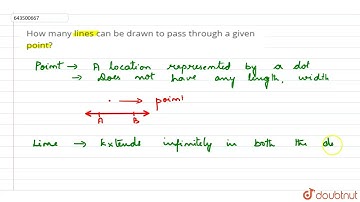 643500667
How many lines can be drawn to pass through a given
point?
Point → A location represented by a dot
→ Does not have any length, width
. → point
A B
Line → Extends infinitely in both the de
doubtnut